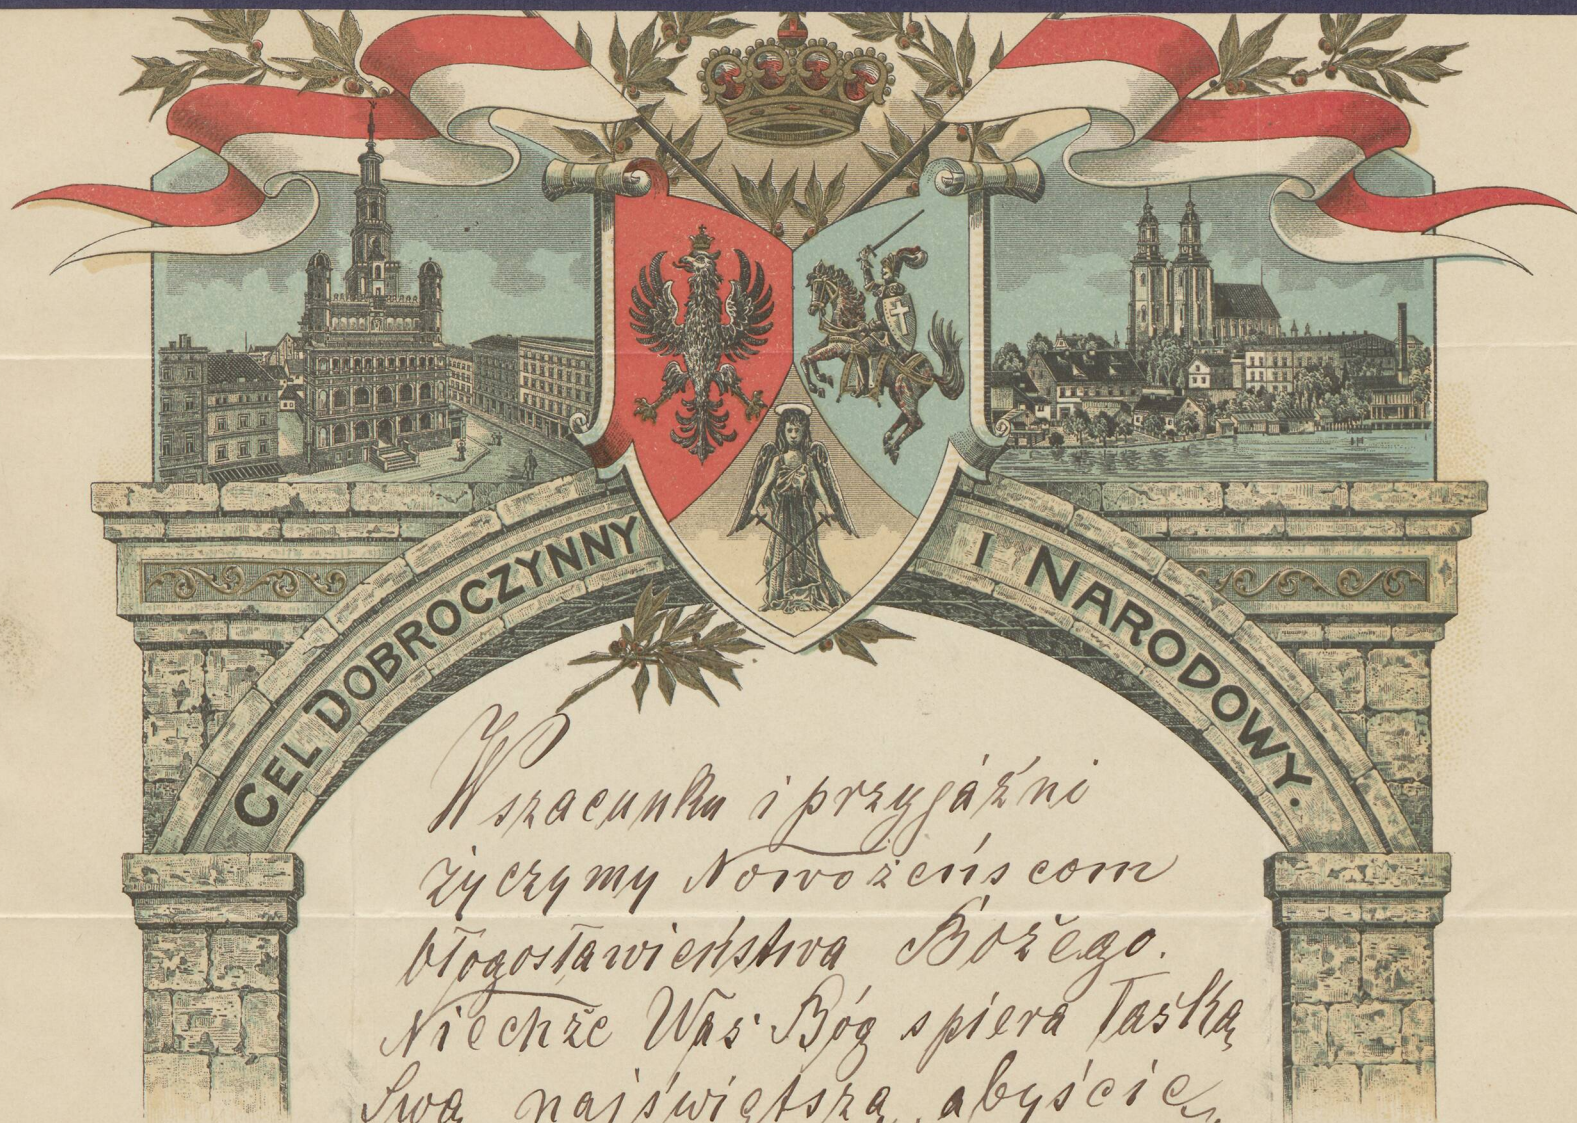 CEL DOBROCZYNNY I NARODOWY.
W szacunku i przyjáźni
życzymy Nowożeńscom
błogosławieństwa Bożego.
Niechże Was Bóg spiera łaską
Swą najświętszą, abyście